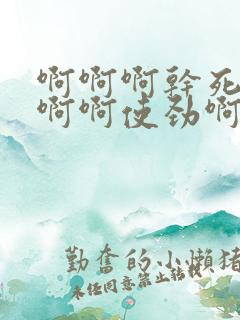 啊啊啊幹死
啊啊使劲啊
勤奋的小懒猪
未经同意禁止转载